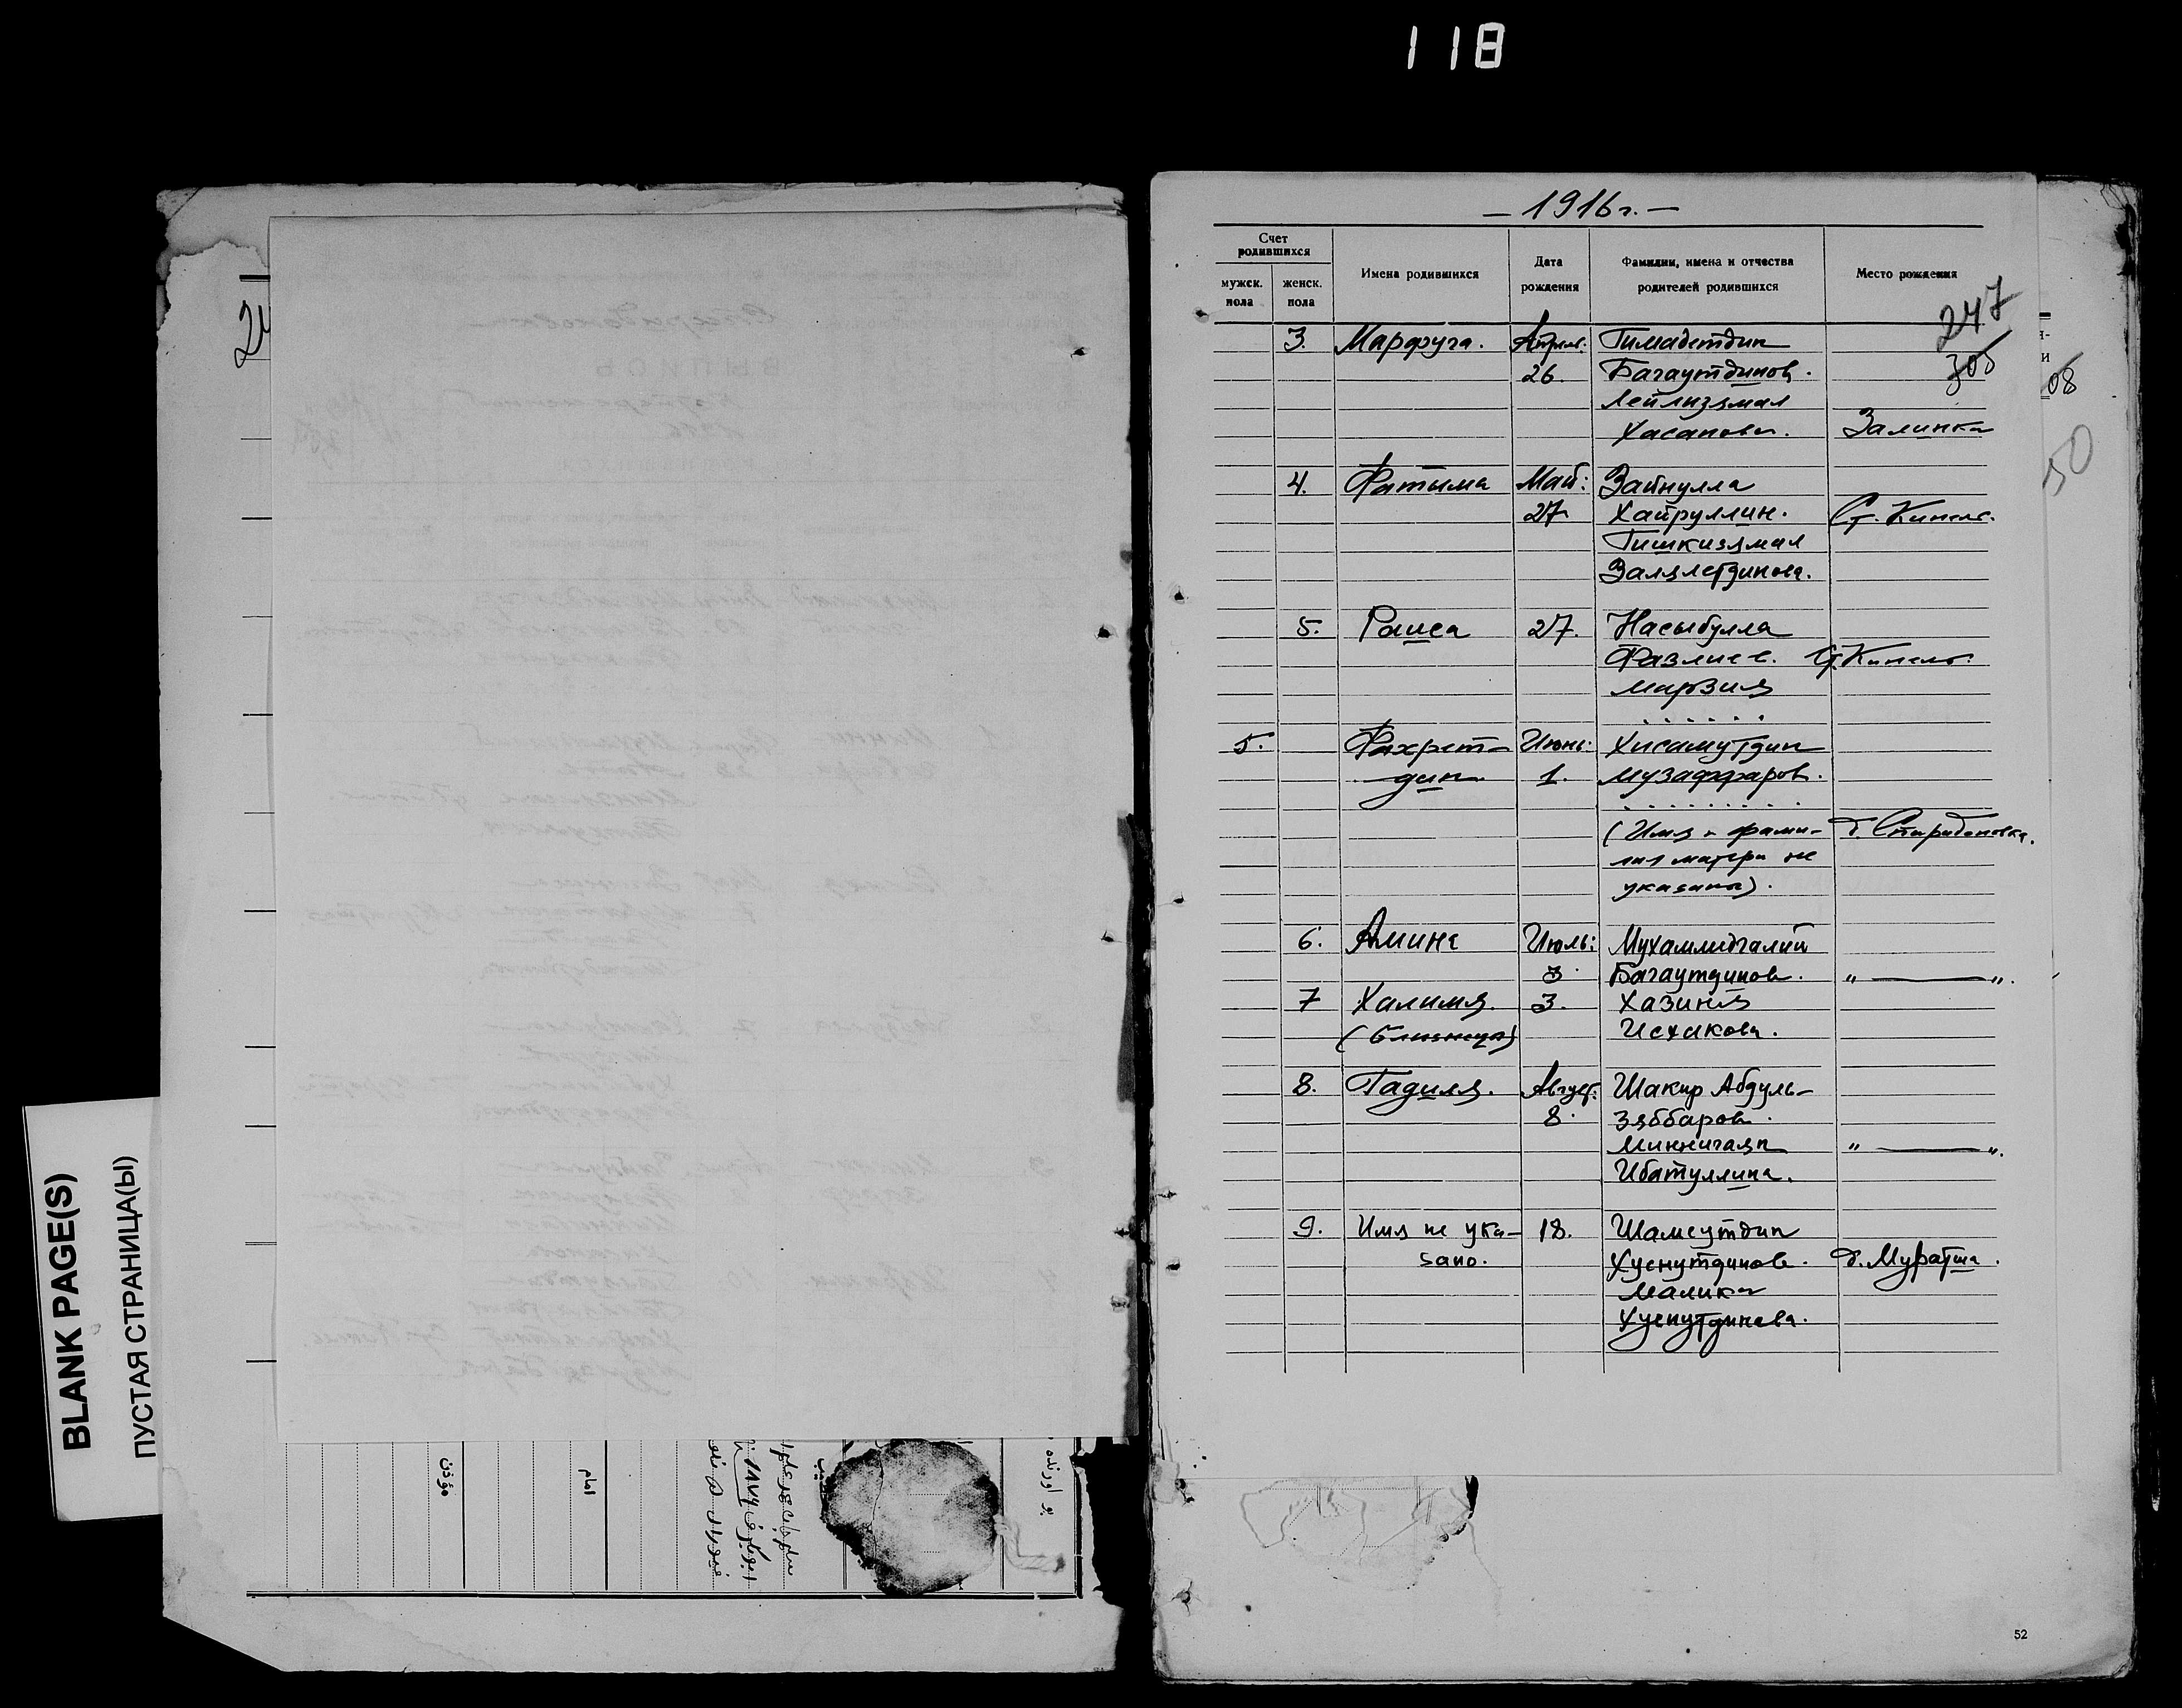 118
BLANK PAGE(S)
ПУСТАЯ СТРАНИЦА(Ы)
مؤذن
امام
— 1916 г. —
Счет родившихся
мужск. пола
женск. пола
Имена родившихся
Дата рождения
Фамилии, имена и отчества родителей родившихся
Место рождения
247
305
08
50
3. Марфуга. Апрель: Гимадетдин
26. Багаутдинов.
Лейлизямал
Хасанова. Залинка
4. Фатыма Май: Зайнулла
27 Хайруллин. Ст. Кинель.
Гишкизямал
Залялетдинова.
5. Раиса 27. Насыбулла
Фазлиев. Ст. Кинель.
Марзия
. . . . . .
5. Фахрет- Июнь: Хисамутдин
дин 1. Музаффаров.
. . . . . . . . .
(Имя и фами- д.
лия матери не
указаны).
6. Амина Июль: Мухаммедгалий
3. Багаутдинов. „ — „.
7 Халимя. 3. Хазиня
(близнецы) Исхакова.
8. Гадиля. Август: Шакир Абдуль-
8. Зяббаров.
Миннигаян „ — „.
Ибатуллина.
9. Имя не ука- 18. Шамсутдин
зано. Хуснутдинов. д. Муратша.
Малика
Хуснутдинова.
52